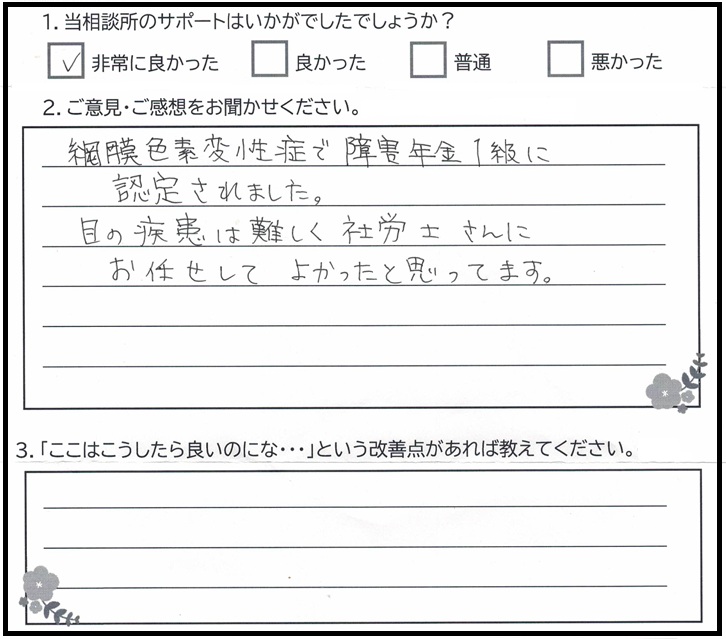 1. 当相談所のサポートはいかがでしたでしょうか？
☑ 非常に良かった □ 良かった □ 普通 □ 悪かった
2. ご意見・ご感想をお聞かせください。
網膜色素変性症で障害年金1級に
認定されました。
目の疾患は難しく社労士さんに
お任せしてよかったと思ってます。
3. 「ここはこうしたら良いのにな・・・」という改善点があれば教えてください。